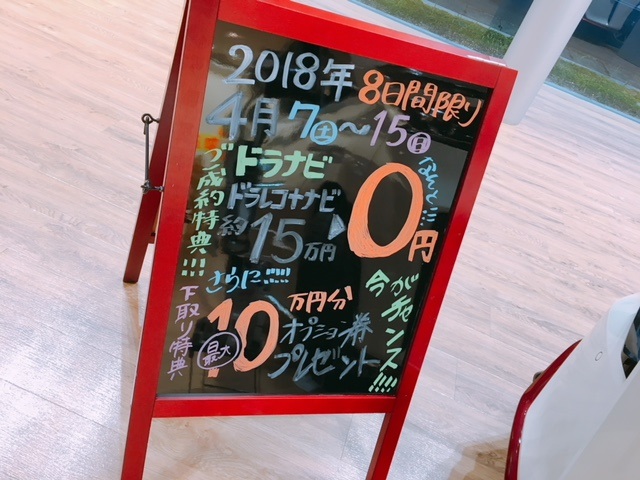 2018年 8日間限り
4月7㊏〜15㊐
ご成約特典!!!
ドラナビ
ドラレコ+ナビ
約15万円
なんと!!!
0円
さらに!!!!!
下取り特典
最大10万円分
オプション券
プレゼント
今がチャンス!!!!